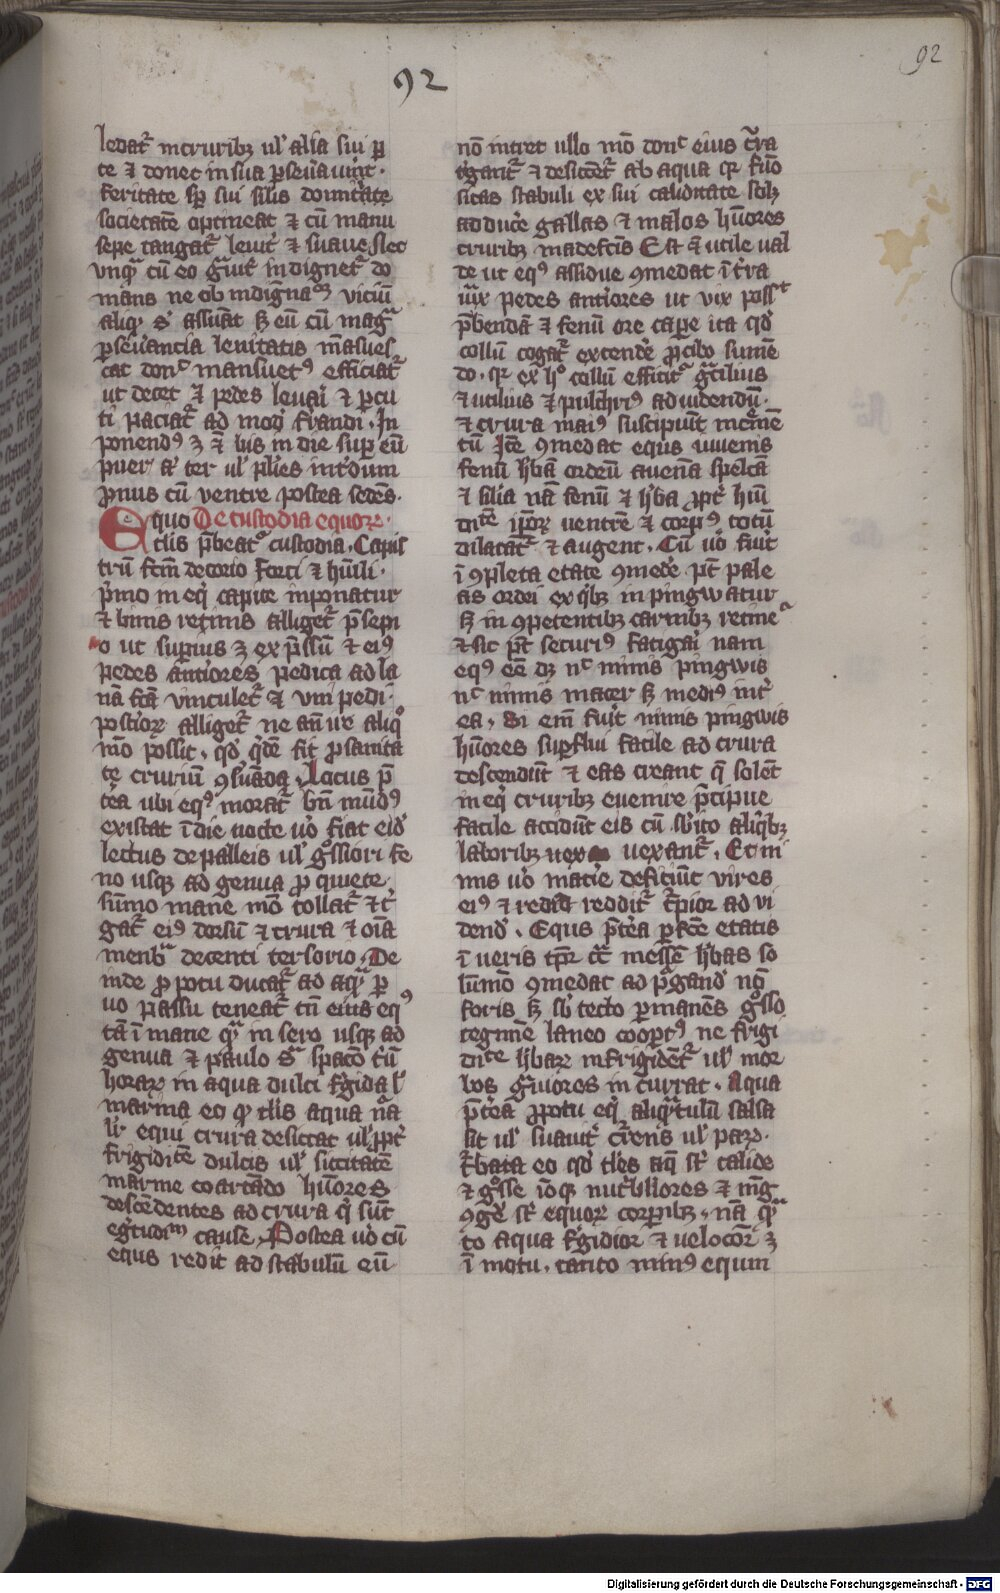 92
92
ledat᷑ in cruribꝫ ul᷑ alia sui ꝑ
te ⁊ donec in sua ꝑseu᷑auit᷑ ·
feritate sp̄ sui silis domitate
societatē optineat ⁊ cū manu
sepe tangat᷑ leuit᷑ ⁊ suaue · Nec
vnqᷓ cū eo gᷓuit᷑ indignet᷑ do
mans ne ob indigna᷑oꝫ viciū
aliqꝰ assūat sꝫ eū cū magᷓ
ꝑseu᷑ancia leuitatis māsues
cat donᶜ mansuetꝰ efficiat᷑
ut decet ⁊ pedes leuai᷑ ⁊ ꝑcu
ti paciat᷑ ad modū f᷑randi · In
ponendꝰ ꝫ ē bis in die suꝑ eū
puer ter ul᷑ pl᷑ies int᷑dum
pronus cū ventre postea sedēs ·
Equo De custodia equoꝝ ·
tlis p̄beat᷑ custodia · Capis
trū fcm̄ de corio forti ⁊ hūili ·
p᷑mo in eq᷑ capite inponatur
⁊ binis retinis alliget᷑ p̄sepi
o ut suꝑius ꝫ exp̄ssū ⁊ eiꝰ
pedes ant᷑iores pedica ad la
nā fcā vinculet᷑ ⁊ vni pedi ·
post᷑ioꝝ alliget᷑ ne aliqͦ
mō possit · qd᷑ qdē fit ꝓ sanita
te crurium ꝯs᷑uāda · Locus p̄
t᷑ea ubi eqꝰ morat᷑ bn̄ mūdꝰ
existat ī die nocte uō fiat eid᷑
lectus de palleis ul᷑ gͦssiori fe
no usqꝫ ad genua ꝓ quiete ·
sūmo mane mō tollat᷑ ⁊ t᷑
gat᷑ eiꝰ dorsū ⁊ crura ⁊ oīa
menbᷓ decenti tersorio · De
inde ꝓ potu ducat᷑ ad aqᷓ ꝑ
uo passu teneat᷑ tū eius eqꝰ
tā ī mane qᷓ in sero usqꝫ ad
genua ⁊ paulo sᷓ spacō t᷑ū
horaꝝ in aqua dulci f᷑gida ul᷑
marina eo qꝫ tlis aqua nᷓa
lr᷑ equi crura desiccat ul᷑ ꝓpt᷑
frigiditᵉ dulcis ul᷑ siccitatē
marine coartādo hūores
descēdentes ad crura q᷑ sūt
eg᷑tudīꝫ cause · Postea uō cū
equs redit ad stabulū eū
nō intret ullo mō donᶜ eius c᷑ra
t᷑gant᷑ ⁊ desiccēt᷑ ab aqua qꝛ fūo
sitas stabuli ex sui caliditate solꝫ
adduc᷑e gallas ⁊ malos hūores
cruribꝫ madefc̄is Est ē utile ual
de ut eqꝰ assidue ꝯmedat ī t᷑ra
iuͯ pedes ant᷑iores ut vix possᵗ
p̄bendā ⁊ fenū ore caꝑe ita qd᷑
collū cogat᷑ extend᷑e p̄ cibo sumē
do · qꝛ ex hͦ collū effici᷑ gͣcilius
⁊ utilius ⁊ pulchriꝰ ad uidendū ·
⁊ crura maiꝰ suscipiūt inc᷑mē
tū Itē ꝯmedat equs iuuenis
fenū h᷑bā ordeū auenā speltā
⁊ silia nā fenū ⁊ h᷑ba ꝓpt᷑ hūi
ditᵉ ip̄oꝝ ventrē ⁊ corpꝰ totū
dilatat᷑ ⁊ augent · Cū uō fuit᷑
ī ꝯpleta etate ꝯmed᷑e pt̄ pale
as ordei ex qͥbꝫ inpingwatur
sꝫ in ꝯpetentibꝫ carnibꝫ retine᷑
⁊ sic pt̄ securiꝰ fatigai᷑ nam
eqꝰ eē dꝫ nᶜ nimis pingwis
nᶜ nimis macer sꝫ mediꝰ int᷑
ea · Si em̄ fuit᷑ nimis pingwis
hūores suꝑflui facile ad crura
descendūt ⁊ eas creant q̄ solēt
in eq᷑ cruribꝫ euenire p̄cipue
facile accidūt eis cū sb᷑ito aliqͥbꝫ
laboribꝫ uex uexant᷑ · Et ni
mis uō macie deficiūt vires
eiꝰ ⁊ redid reddit᷑ t᷑pior ad vi
dend᷑ · Equs p̄t᷑ea ꝑfc̄e etatis
ī ueris tp̄r ct᷑ messē h᷑bas so
lūmō ꝯmedat ad p᷑gand᷑ nō
foris sꝫ sb᷑ tecto ꝑmanēs gͦsso
tegmīe laneo cooꝑtꝰ ne frigi
ditᵉ h᷑baꝝ infrigidēt᷑ ul᷑ mor
bos gᷓuiores incurrat · Aqua
p̄t᷑ea ꝓ potu eq᷑ aliqᷓtulū salsa
sit ul᷑ suauit᷑ c᷑rens ul᷑ paꝝ ·
t᷑bata eo qd᷑ tles aq̄ st᷑ calide
⁊ gͦsse iōqꝫ nut᷑biliores ⁊ mᷓg
ꝯgᷓe st᷑ equoꝝ corꝑibꝫ · nā qᷓ
to aqua f᷑gidior ⁊ uelocior ꝫ
ī motu · tanto minꝰ equm
Digitalisierung gefördert durch die Deutsche Forschungsgemeinschaft - DFG